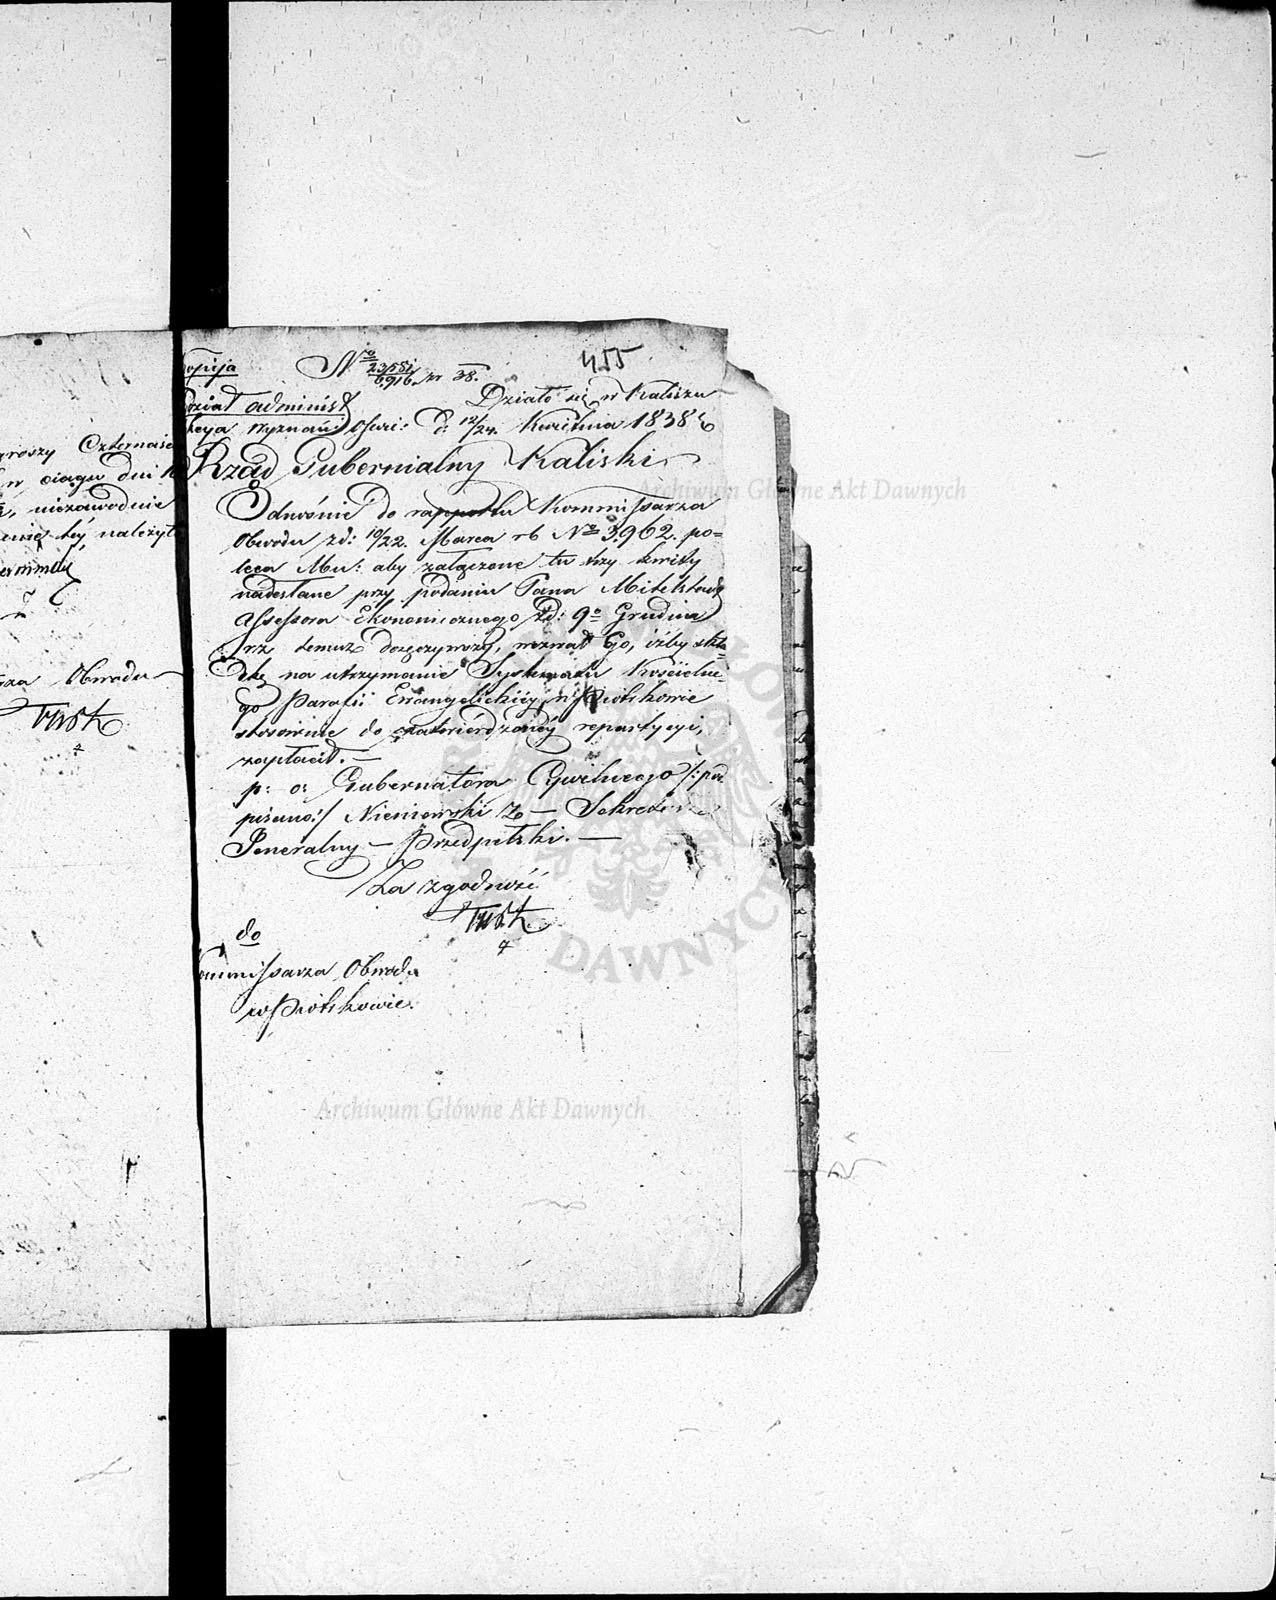 groszy Czternaście
w ciągu dni
niezawodnie
należyt
Obwodu
455
Kopija
No 23,581/6,916 r. 38.
Działo się w Kaliszu
Wydział administ
Sekcya Wyznań Oświe: d: 12/24. Kwietnia 1838 r.
Rząd Gubernialny Kaliski
Odnośnie do rapportu Kommissarza
Obwodu zd: 10/22. Marca rb No 3,962. po=
leca Mu: aby załączone tu trzy kwity
nadesłane przy podaniu Pana Mitelstaedt
Assessora Ekonomicznego zd: 9o Grudnia
rz temuż doręczywszy, wezwał Go, iżby skła=
dkę na utrzymanie Systematu Kościelne=
go Parafii Ewangelickiéy w Piotrkowie
stosownie do zatwierdzonéy repartycyi,
zapłacił.—
p: o: Gubernatora Cywilnego /:pod
pisano:/ Nieniewski — Sekretarz
Generalny — Przedpełski.—
Za zgodność
do
Kommissarza Obwodu
w Piotrkowie.
Archiwum Główne Akt Dawnych
Archiwum Główne Akt Dawnych
DAWNYCH